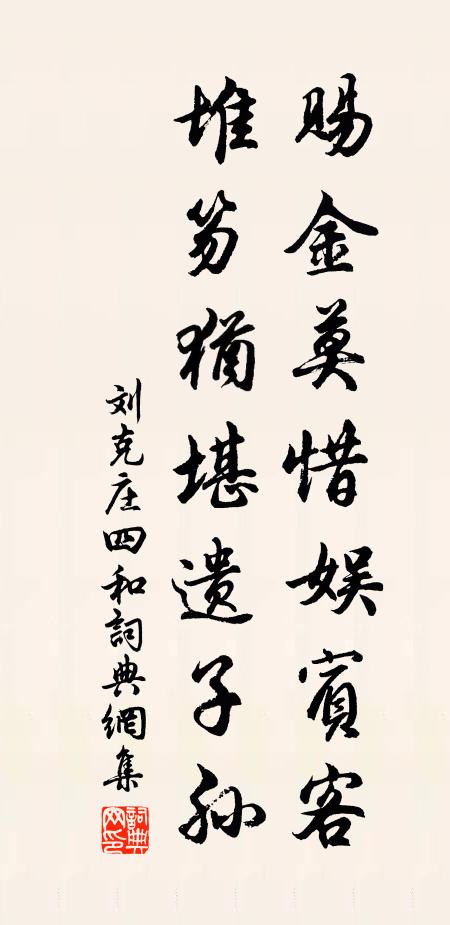 赐金莫惜娱宾客
堆笏犹堪遗子孙
刘克庄四和詞典網集
詞典網印